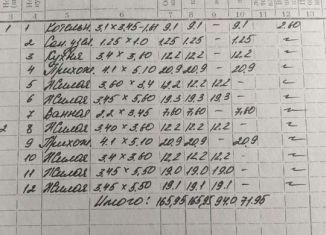 7 8 9 10 11 12 13
1 1 Котельн. 3,1 × 3,45 - 1,61 9,1 9,1 - 9,1 2,60
2 Сан. узел 1.25 × 1.0 1.25 1.25 - 1.25 "
3 Кухня 3,4 × 3,60 12.2 12.2 - 12.2 "
4 Прихож. 4.1 × 5.10 20,9 20,9 - 20,9 "
5 Жилая 3,60 × 3,4 12.2 12.2 12.2 - "
6 Жилая 3,45 × 5,60 19.3 19.3 19.3 - "
7 Ванная 2,2 × 3,45 7,60 7,60 - 7,60 "
2 8 Жилая 3,40 × 3,60 12.2 12.2 12.2 - "
9 Прихож. 4.1 × 5.10 20,9 20,9 - 20,9 "
10 Жилая 3,4 × 3,60 12.2 12.2 12.2 - "
11 Жилая 3,45 × 5,50 19.0 19.0 19.0 - "
12 Жилая 3,45 × 5,50 19.1 19.1 19.1 - "
Итого: 165,95 165,95 94.0 71.95